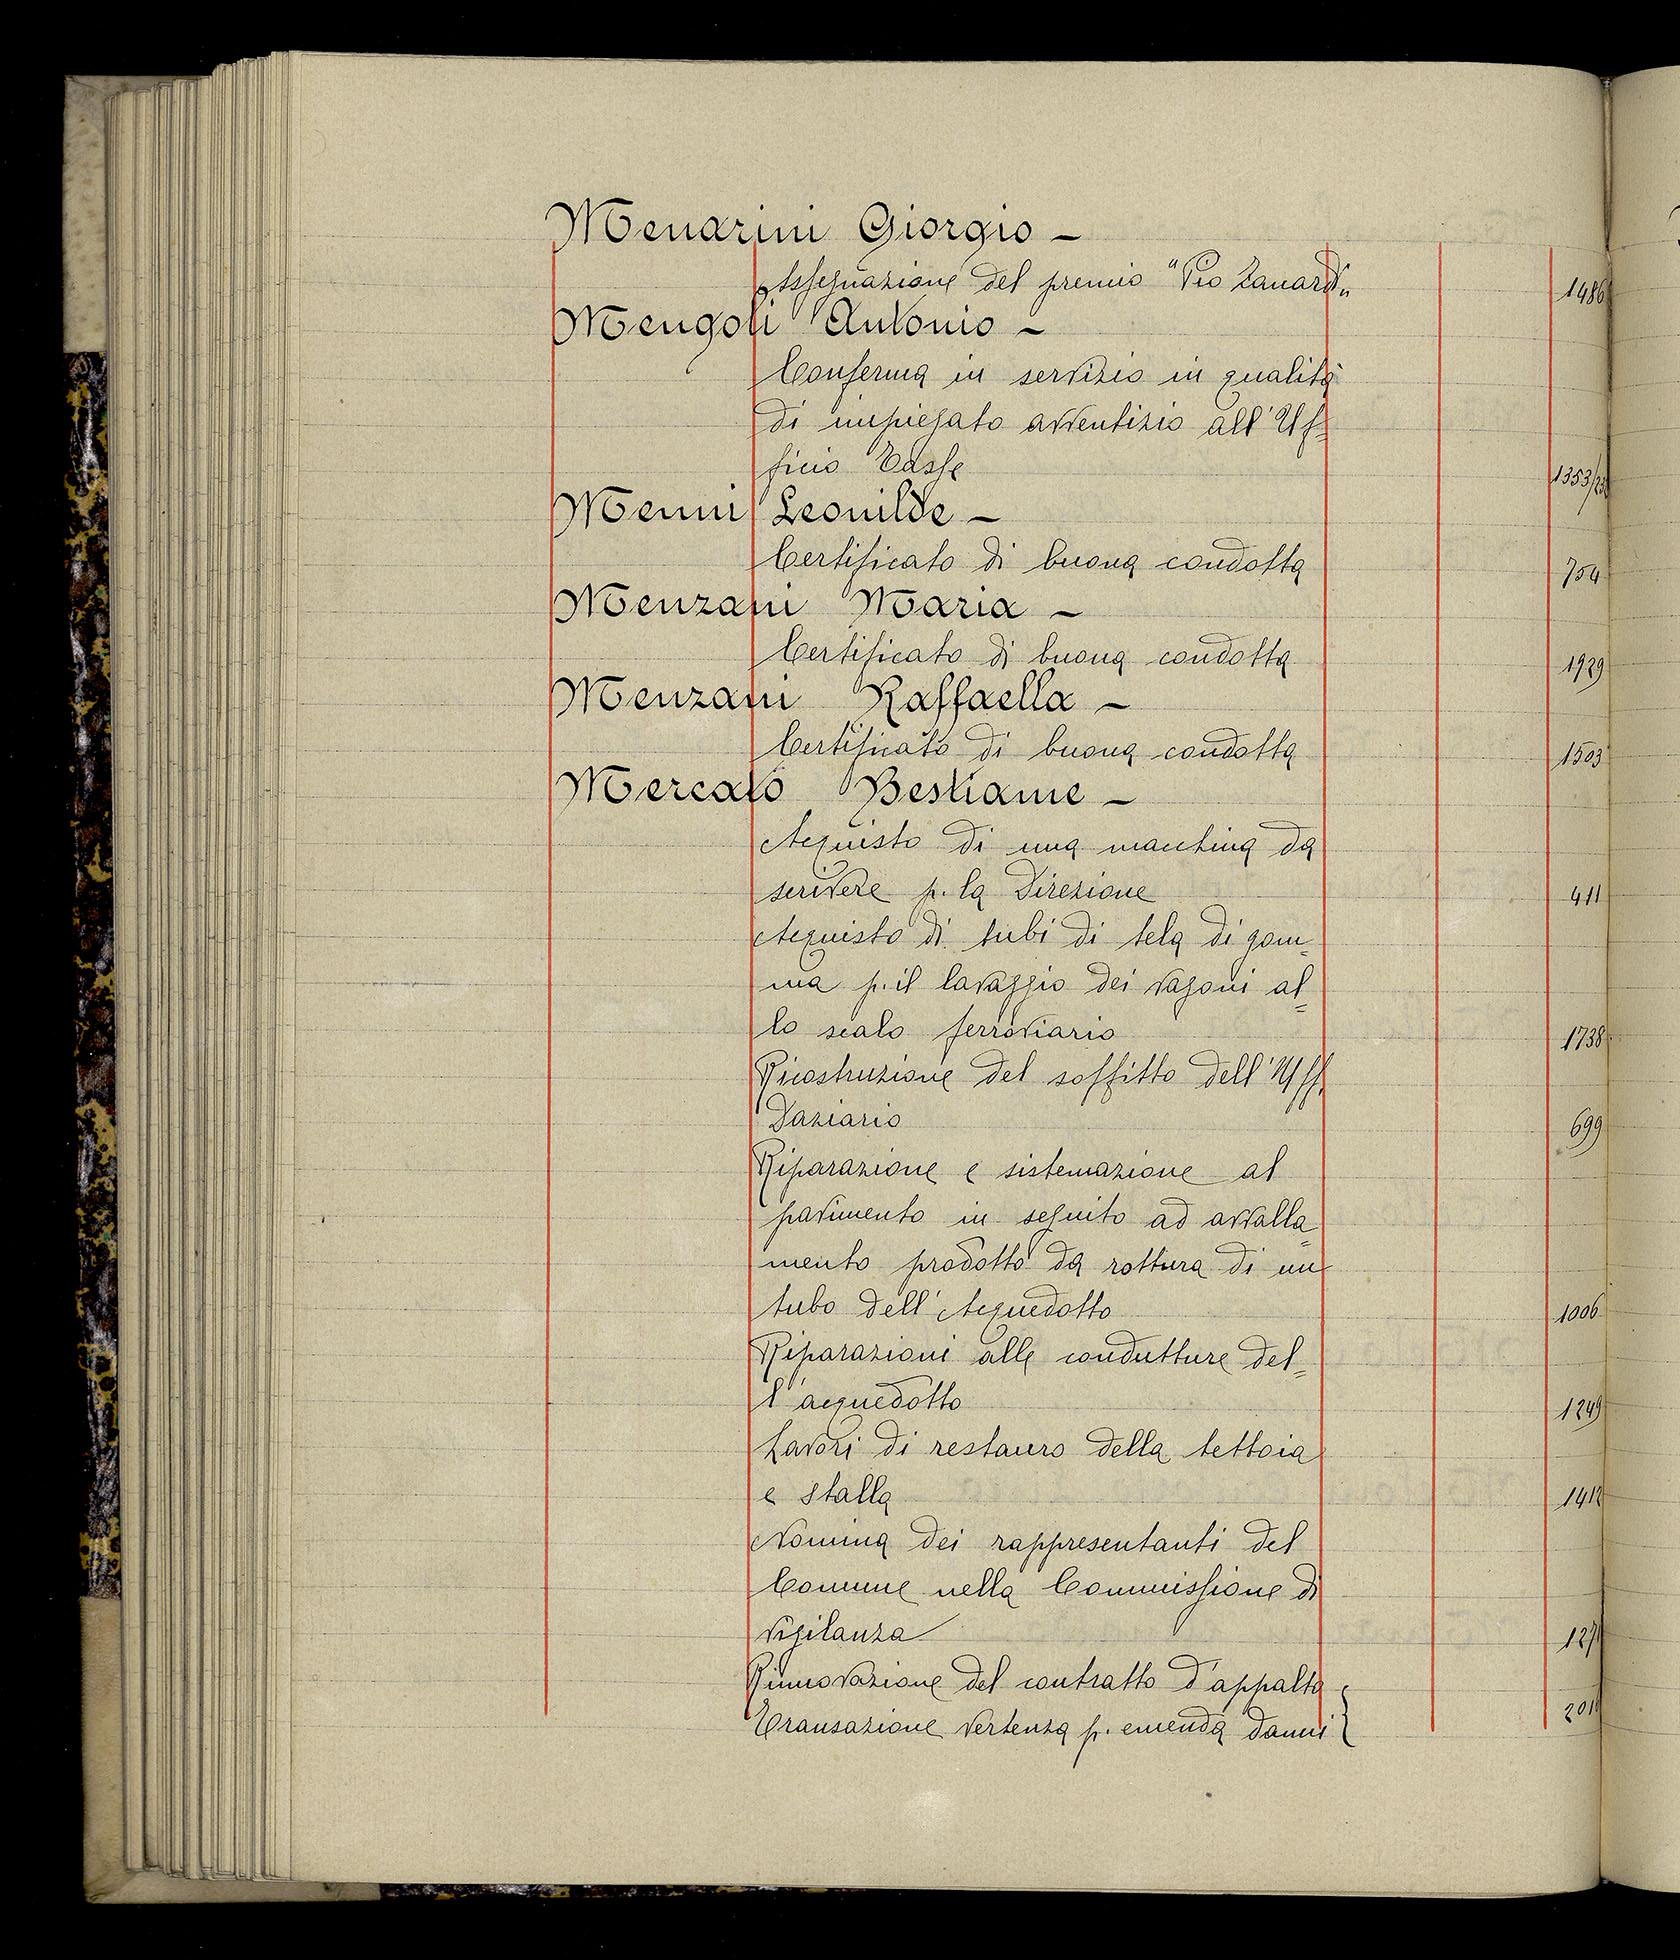 Menarini Giorgio –
Assegnazione del premio "Pio Zanardi„ 1486
Mengoli Antonio –
Conferma in servizio in qualità
di impiegato avventizio all'Uf=
ficio Tasse 1353/
Menni Leonilde –
Certificato di buona condotta 754
Menzani Maria –
Certificato di buona condotta 1929
Menzani Raffaella –
Certificato di buona condotta 1503
Mercato Bestiame –
Acquisto di una macchina da
scrivere p. la Direzione 411
Acquisto di tubi di tela di gom=
ma p. il lavaggio dei vagoni al=
lo scalo ferroviario 1738
Ricostruzione del soffitto dell'Uff.
Daziario 699
Riparazione e sistemazione al
pavimento in seguito ad avvalla=
mento prodotto da rottura di un
tubo dell'Acquedotto 1006
Riparazioni alle condutture del=
l'acquedotto 1249
Lavori di restauro della tettoia
e stalla 1412
Nomina dei rappresentanti del
Comune nella Commissione di
vigilanza 1271
Rinnovazione del contratto d'appalto
Transazione vertenza p. emenda danni }